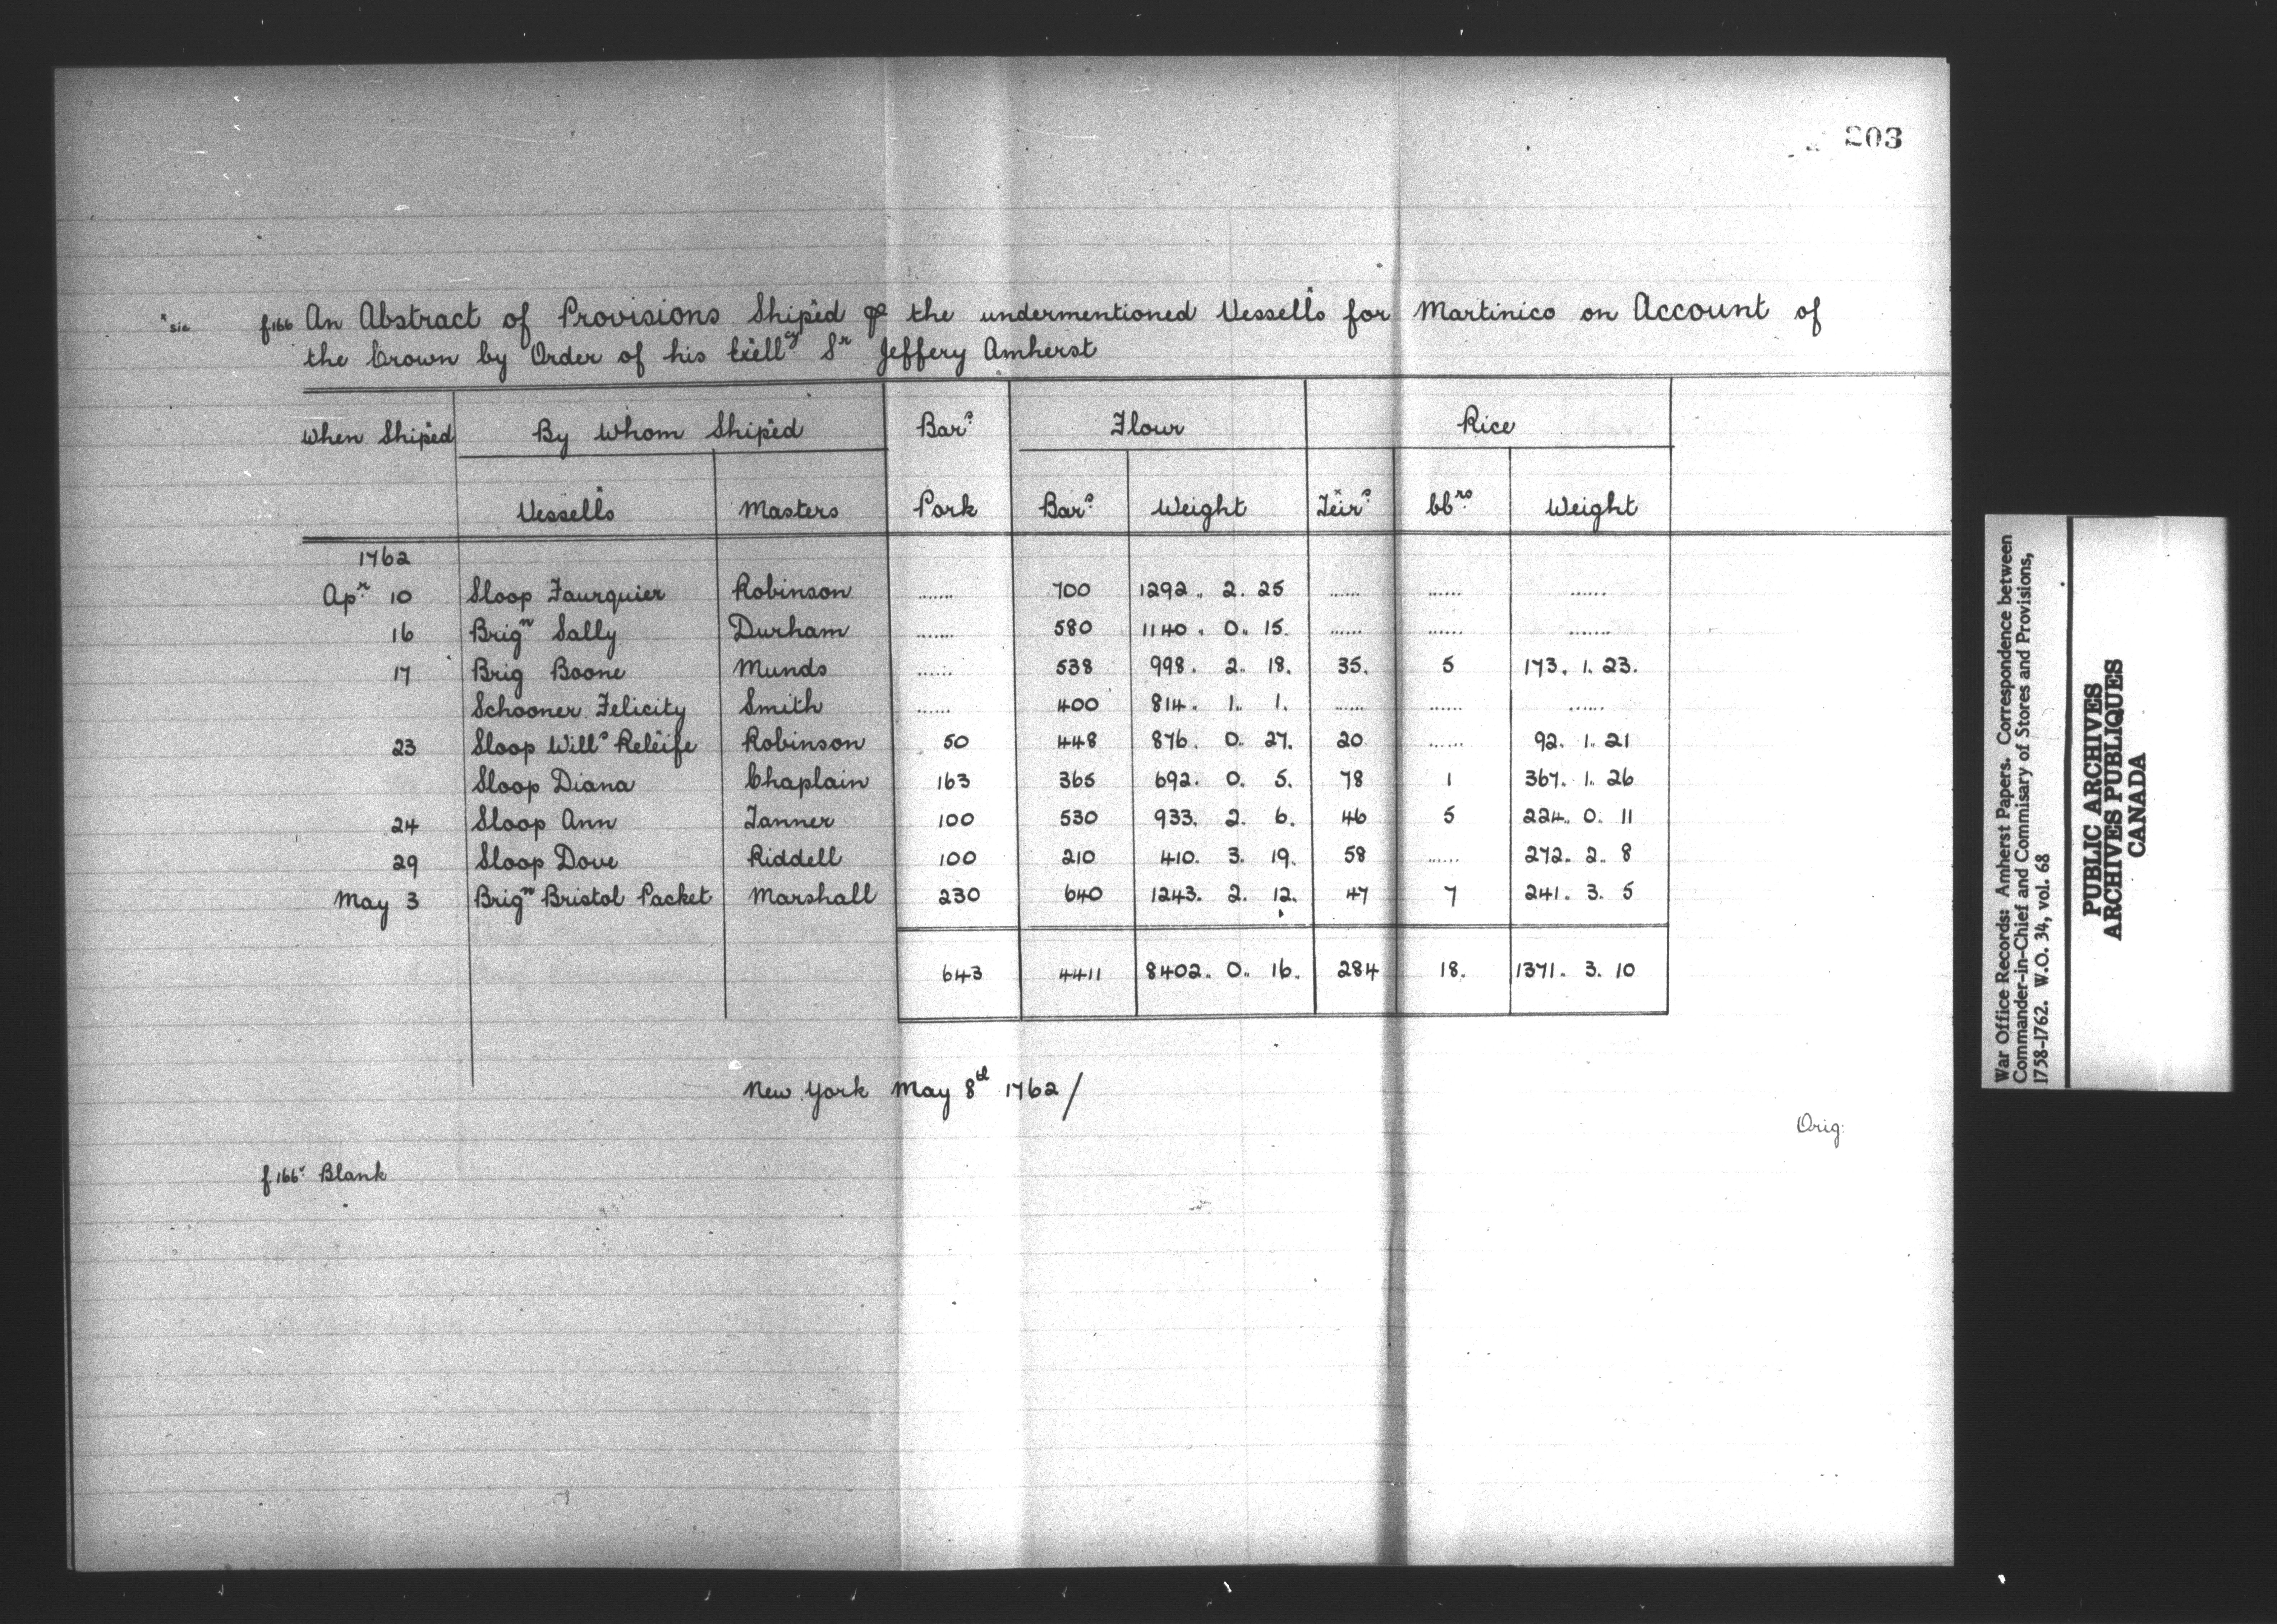 203
*sic
f166 An Abstract of Provisions Shiped ⅌ the undermentioned Vessells for Martinico on Account of
the Crown by Order of his Exelly Sr Jeffery Amherst
When Shiped By Whom Shiped Bars Flour Rice
Vessells Masters Pork Bars Weight Teirs bbrs Weight
1762
Apr 10 Sloop Faurquier Robinson ...... 700 1292.. 2. 25 ...... ...... ......
16 Brign Sally Durham ...... 580 1140. 0.. 15. ...... ...... ......
17 Brig Boone Munds ...... 538 998. 2.. 18. 35. 5 173. 1. 23.
Schooner Felicity Smith ...... 400 814. 1.. 1. ...... ...... ......
23 Sloop Wills Releife Robinson 50 448 876. 0.. 27. 20 ...... 92. 1.. 21
Sloop Diana Chaplain 163 365 692. 0. 5. 78 1 367. 1.. 26
24 Sloop Ann Tanner 100 530 933. 2. 6. 46 5 224.. 0. 11
29 Sloop Dove Riddell 100 210 410. 3. 19. 58 ...... 272.. 2.. 8
May 3 Brign Bristol Packet Marshall 230 640 1243. 2. 12. 47 7 241. 3. 5
643 4411 8402.. 0.. 16. 284 18. 1371. 3. 10
New York May 8th 1762/
Orig:
f166v Blank
War Office Records: Amherst Papers. Correspondence between
Commander-in-Chief and Commisary of Stores and Provisions,
1758-1762. W.O. 34, vol. 68
PUBLIC ARCHIVES
ARCHIVES PUBLIQUES
CANADA